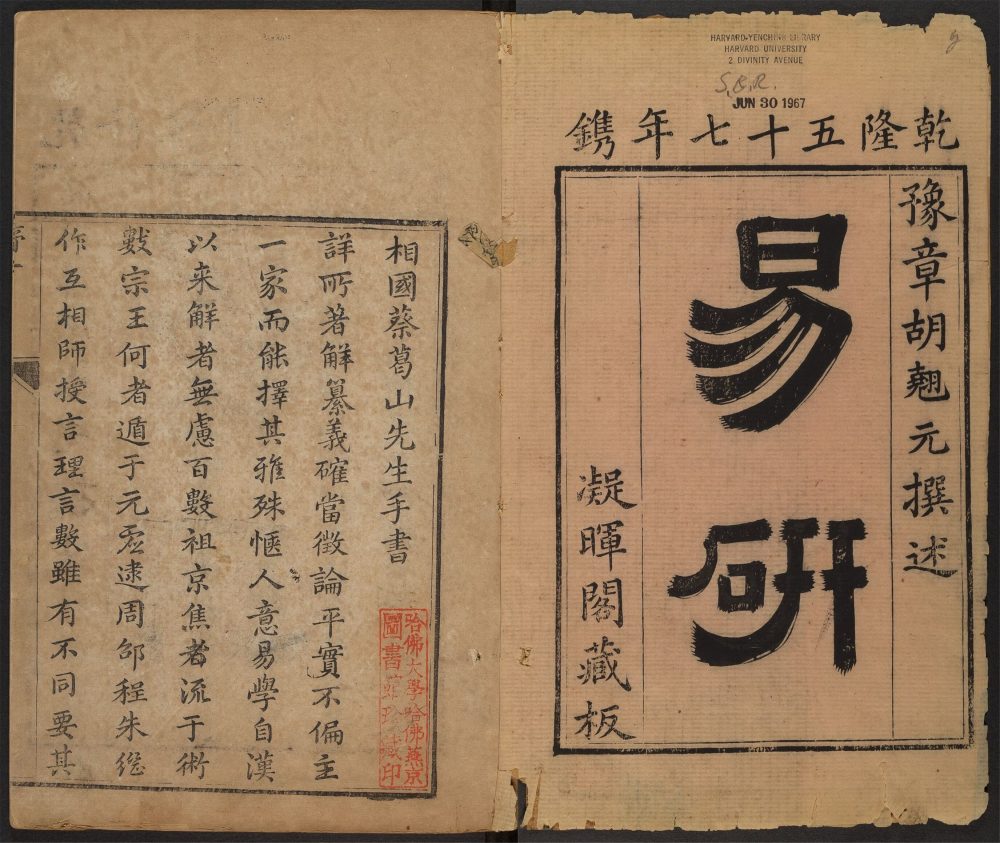 HARVARD-YENCHING LIBRARY
HARVARD UNIVERSITY
2 DIVINITY AVENUE
S.B.R.
JUN 30 1967
乾隆五十七年鐫
豫章胡翹元撰述
易研
凝暉閣藏板
相國蔡葛山先生手書
詳所著解纂義確當徵論平實不偏主
一家而能擇其雅殊愜人意易學自漢
以来解者無慮百數祖京焦者流于術
數宗王何者遁于元虛逮周邵程朱继
作互相師授言理言數雖有不同要其
哈佛大學哈佛燕京
圖書館珍藏印